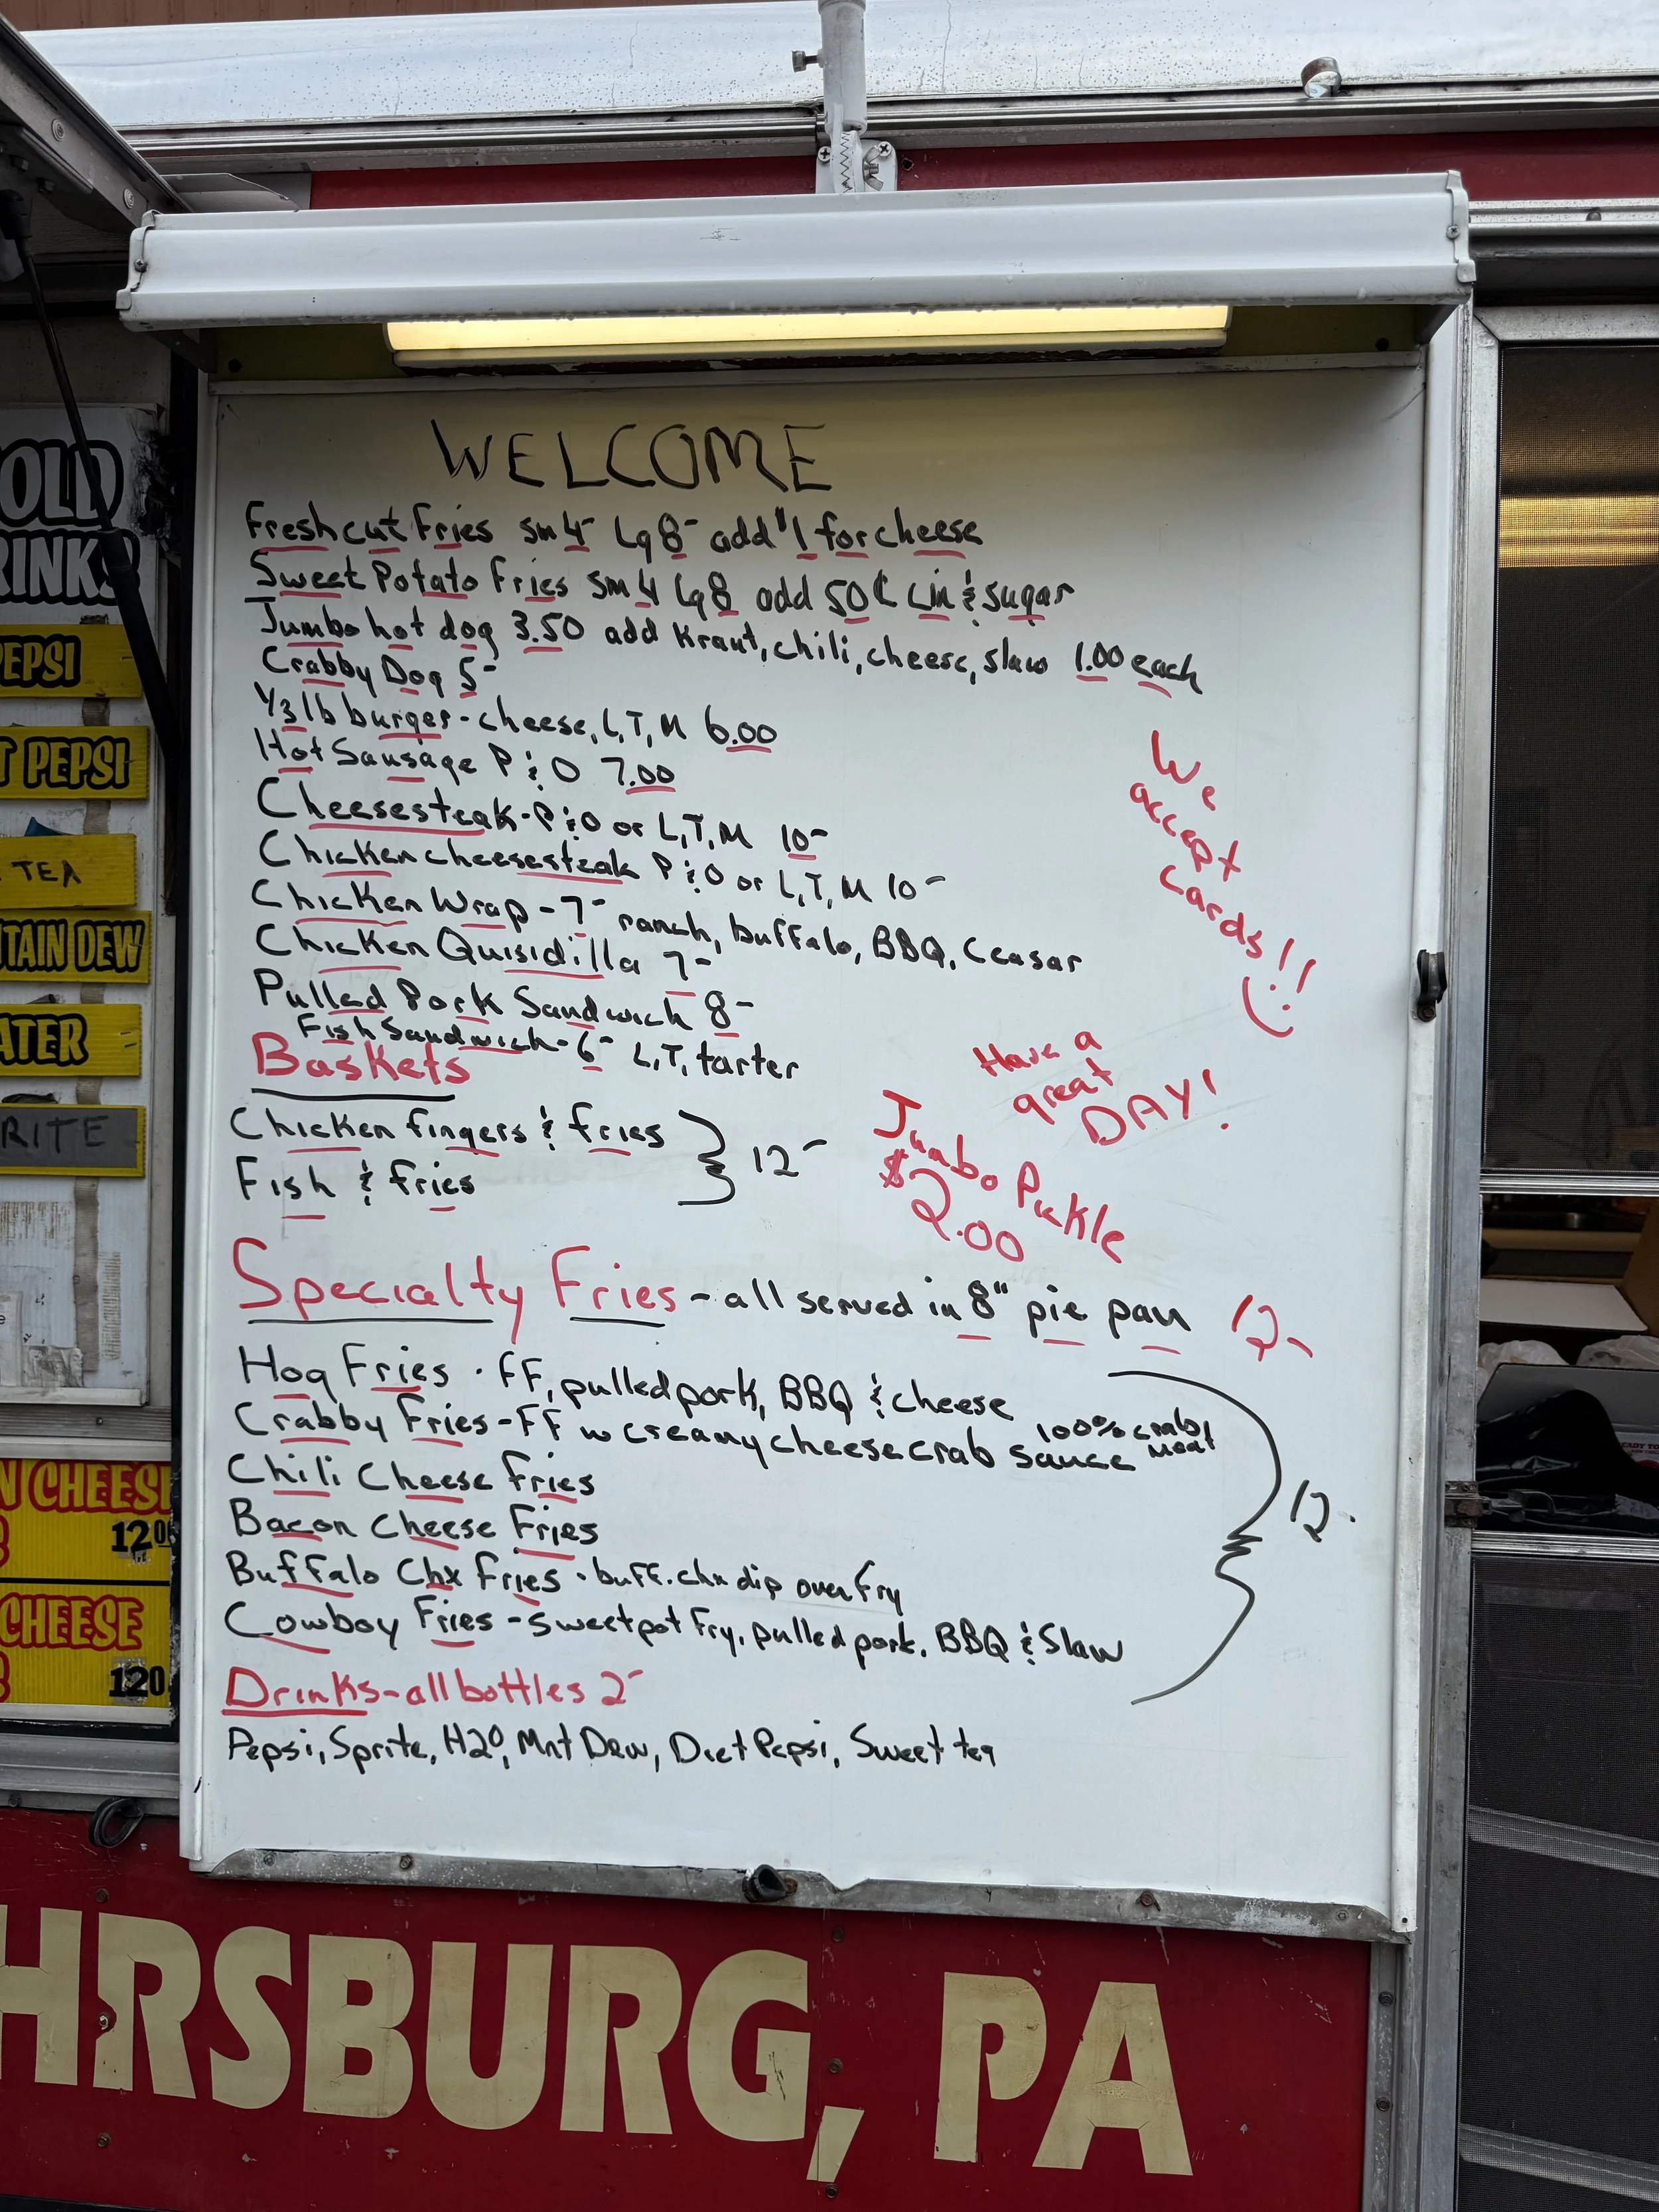 WELCOME
Fresh cut Fries sm 4- Lg 8- add $1 for cheese
Sweet Potato Fries sm 4 Lg 8 add 50¢ Cin & sugar
Jumbo hot dog 3.50 add Kraut, chili, cheese, slaw 1.00 each
Crabby Dog 5-
1/3 lb burger - cheese, L, T, M 6.00
Hot Sausage P & O 7.00
Cheesesteak - P & O or L, T, M 10-
Chicken cheesesteak P & O or L, T, M 10-
Chicken Wrap - 7- ranch, buffalo, BBQ, Ceasar
Chicken Quisidilla 7-
Pulled Pork Sandwich 8-
Fish Sandwich - 6- L, T, tarter
We
accept
cards!!
Have a
great
DAY!
Baskets
Chicken fingers & fries
Fish & fries
12-
Jumbo Pickle
$2.00
Specialty Fries - all served in 8" pie pan 12-
Hog Fries - FF, pulled pork, BBQ & cheese
Crabby Fries - FF w creamy cheese crab sauce 100% crab meat
Chili Cheese Fries
Bacon Cheese Fries
Buffalo Chx Fries - buff. chx dip over fry
Cowboy Fries - sweet pot fry, pulled pork, BBQ & Slaw
12-
Drinks - all bottles 2-
Pepsi, Sprite, H2O, Mnt Dew, Diet Pepsi, Sweet tea
OLD
RINKS
EPSI
T PEPSI
TEA
TAIN DEW
ATER
RITE
N CHEESE
12.00
CHEESE
120
HRSBURG, PA